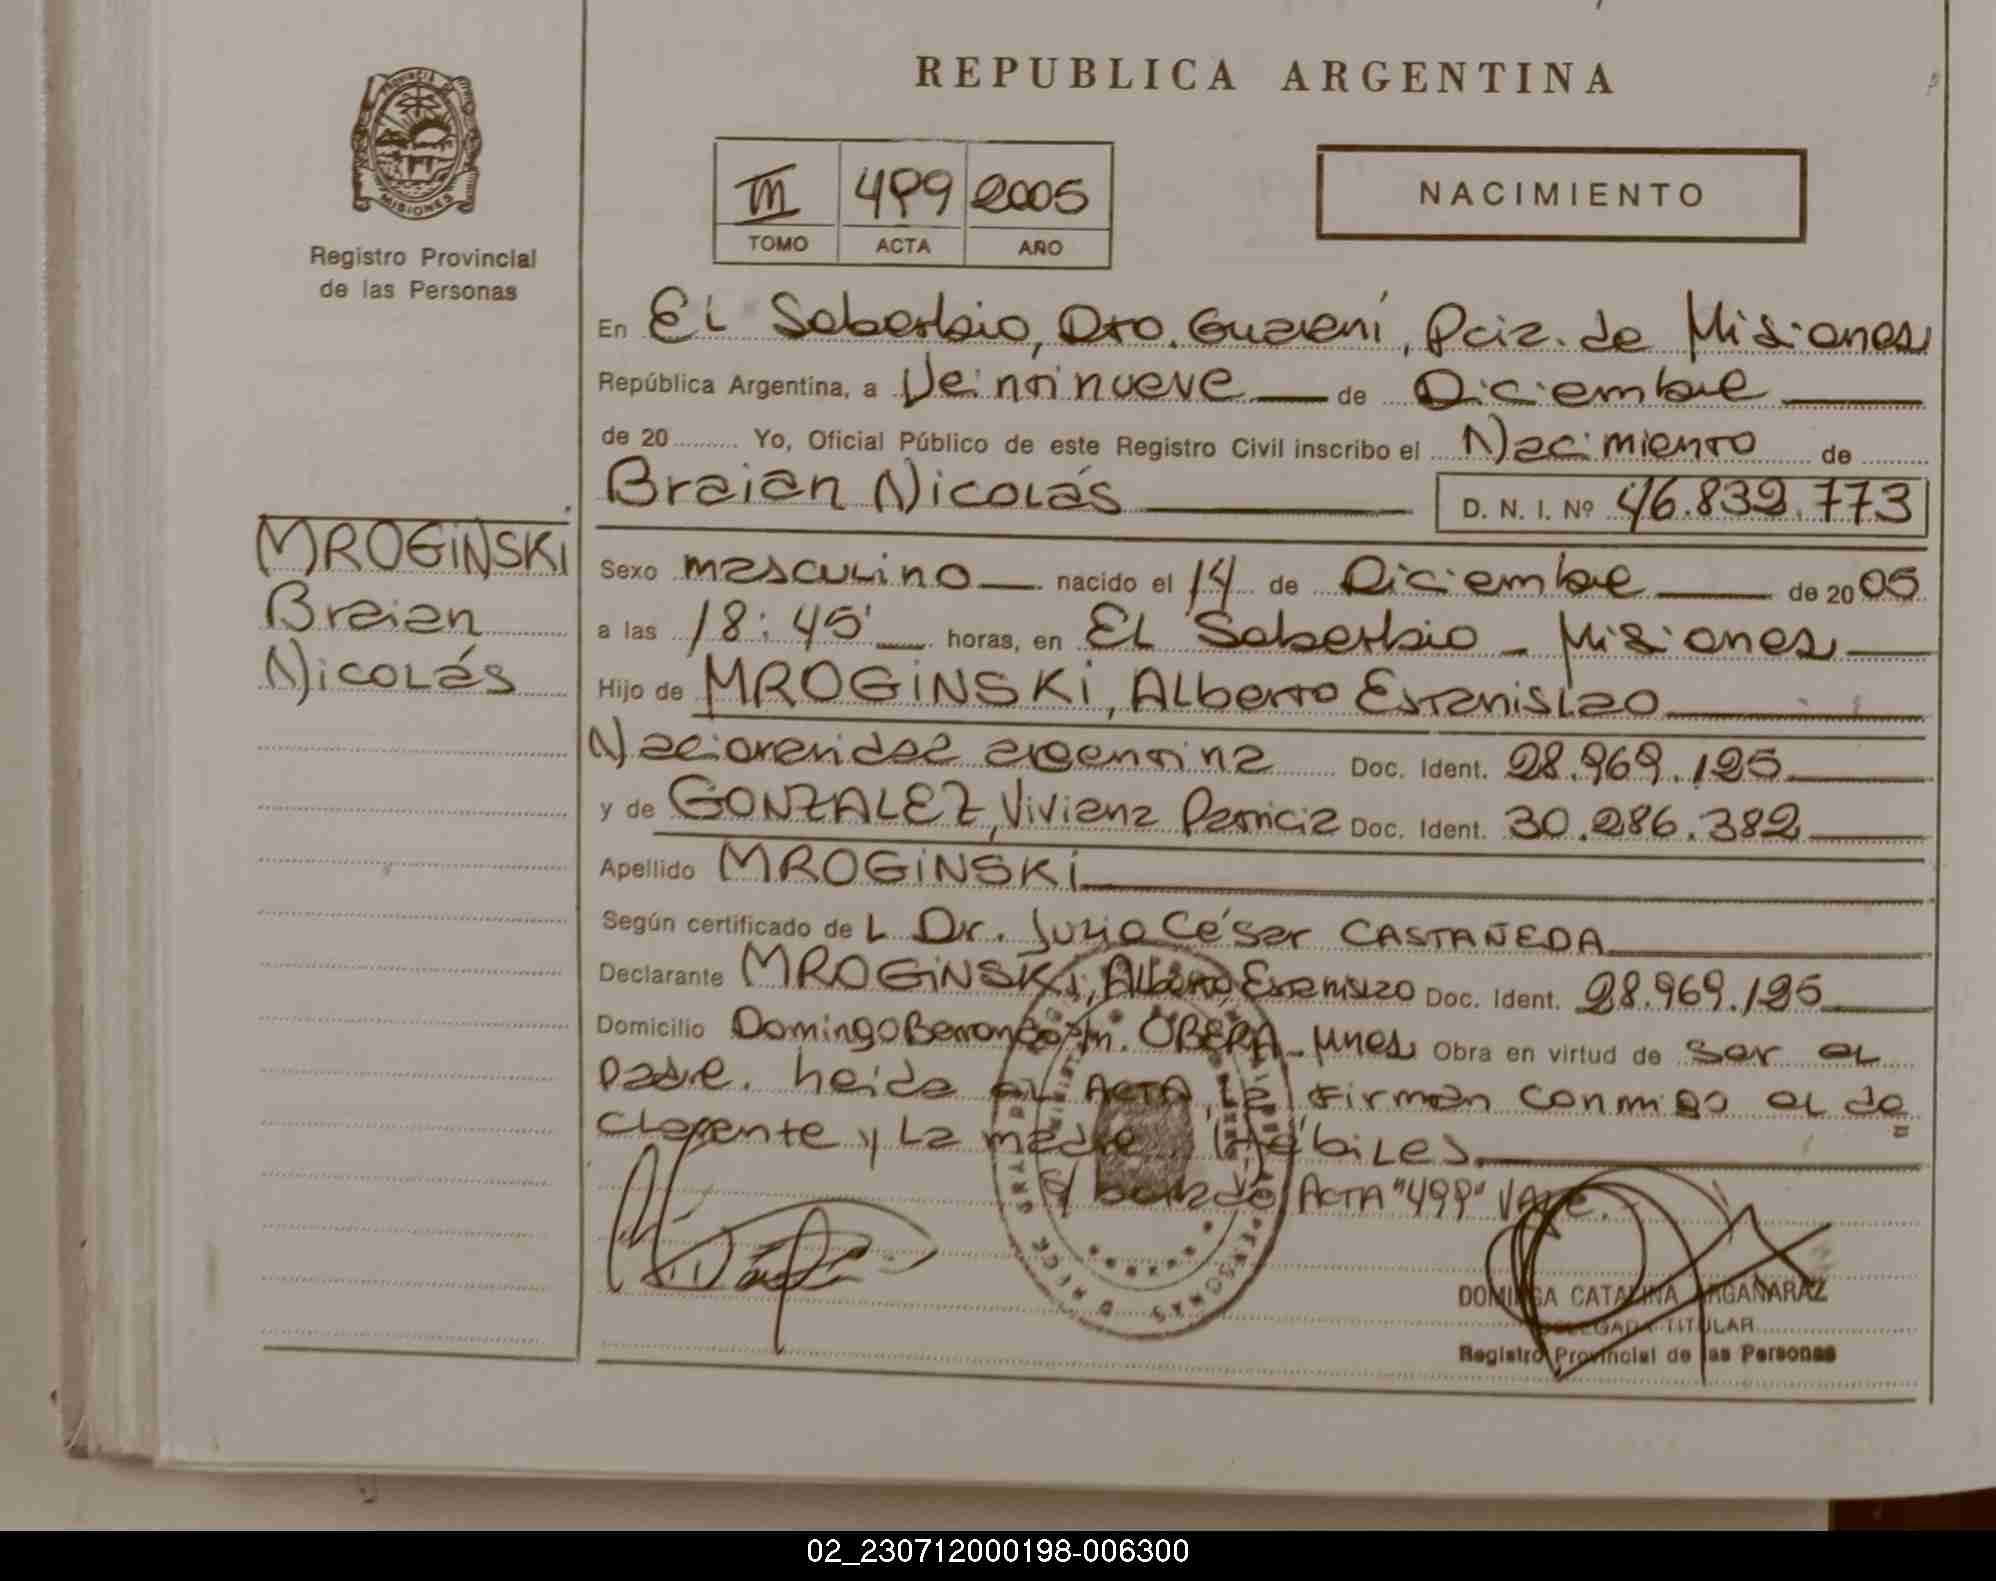 REPUBLICA ARGENTINA
PROVINCIA DE
MISIONES
Registro Provincial
de las Personas
III 499 2005
TOMO ACTA AÑO
NACIMIENTO
En El Soberbio, Dto. Guaraní, Pcia. de Misiones
República Argentina, a Veintinueve de Diciembre
de 20 Yo, Oficial Público de este Registro Civil inscribo el Nacimiento de
Braian Nicolás D. N. I. Nº 46.832.773
MROGINSKI
Braian
Nicolás
Sexo masculino nacido el 14 de Diciembre de 2005
a las 18:45' horas, en El Soberbio - Misiones
Hijo de MROGINSKI, Alberto Estanislao
Nacionalidad argentina Doc. Ident. 28.969.125
y de GONZALEZ, Viviana Patricia Doc. Ident. 30.286.382
Apellido MROGINSKI
Según certificado de L Dr. Julio César CASTAÑEDA
Declarante MROGINSKI, Alberto Estanislao Doc. Ident. 28.969.125
Domicilio Domingo OBERA - Mnes Obra en virtud de ser el
padre. Leida el ACTA, la firman conmigo el de
clarante y la madre Hábiles.
ACTA "499" VALE.
DOMINGA CATALINA ARGAÑARAZ
DELEGADA TITULAR
Registro Provincial de las Personas
02_230712000198-006300